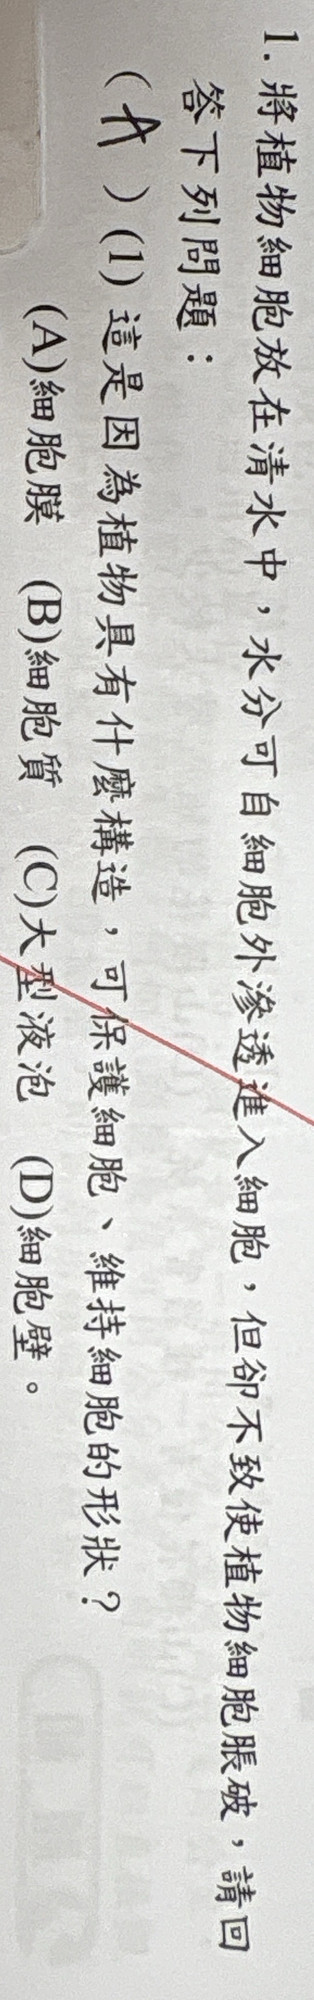 1. 將植物細胞放在清水中，水分可自細胞外滲透進入細胞，但卻不致使植物細胞脹破，請回
答下列問題：
( A ) (1) 這是因為植物具有什麼構造，可保護細胞、維持細胞的形狀？
(A)細胞膜 (B)細胞質 (C)大型液泡 (D)細胞壁。